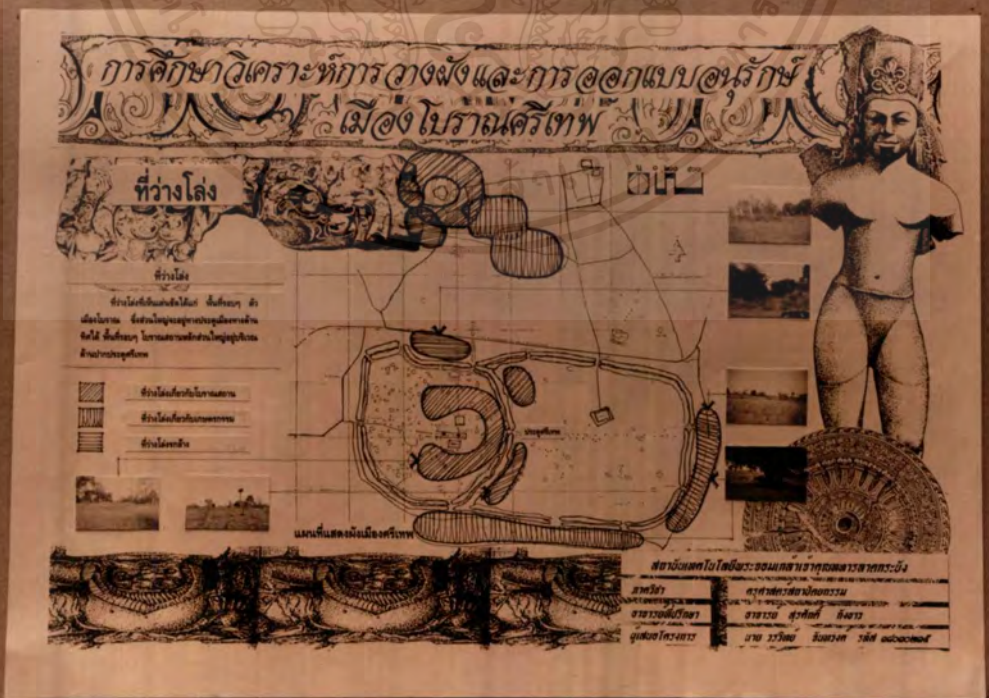 การศึกษาวิเคราะห์การวางผังและการออกแบบอนุรักษ์
เมืองโบราณศรีเทพ
ที่ว่างโล่ง
ที่ว่างโล่ง
ที่ว่างโล่งที่เห็นเด่นชัดได้แก่ พื้นที่รอบๆ ตัว
เมืองโบราณ ซึ่งส่วนใหญ่จะอยู่ทางประตูเมืองทางด้าน
ทิศใต้ พื้นที่รอบๆ โบราณสถานหลักส่วนใหญ่อยู่บริเวณ
ด้านปากประตูศรีเทพ
ที่ว่างโล่งเกี่ยวกับโบราณสถาน
ที่ว่างโล่งเกี่ยวกับเกษตรกรรม
ที่ว่างโล่งรกล้าง
ประตูศรีเทพ
แผนที่แสดงผังเมืองศรีเทพ
สถาบันเทคโนโลยีพระจอมเกล้าเจ้าคุณทหารลาดกระบัง
ภาควิชา ครุศาสตร์สถาปัตยกรรม
อาจารย์ที่ปรึกษา อาจารย์ สุรศักดิ์
ผู้เสนอโครงการ นาย รหัส